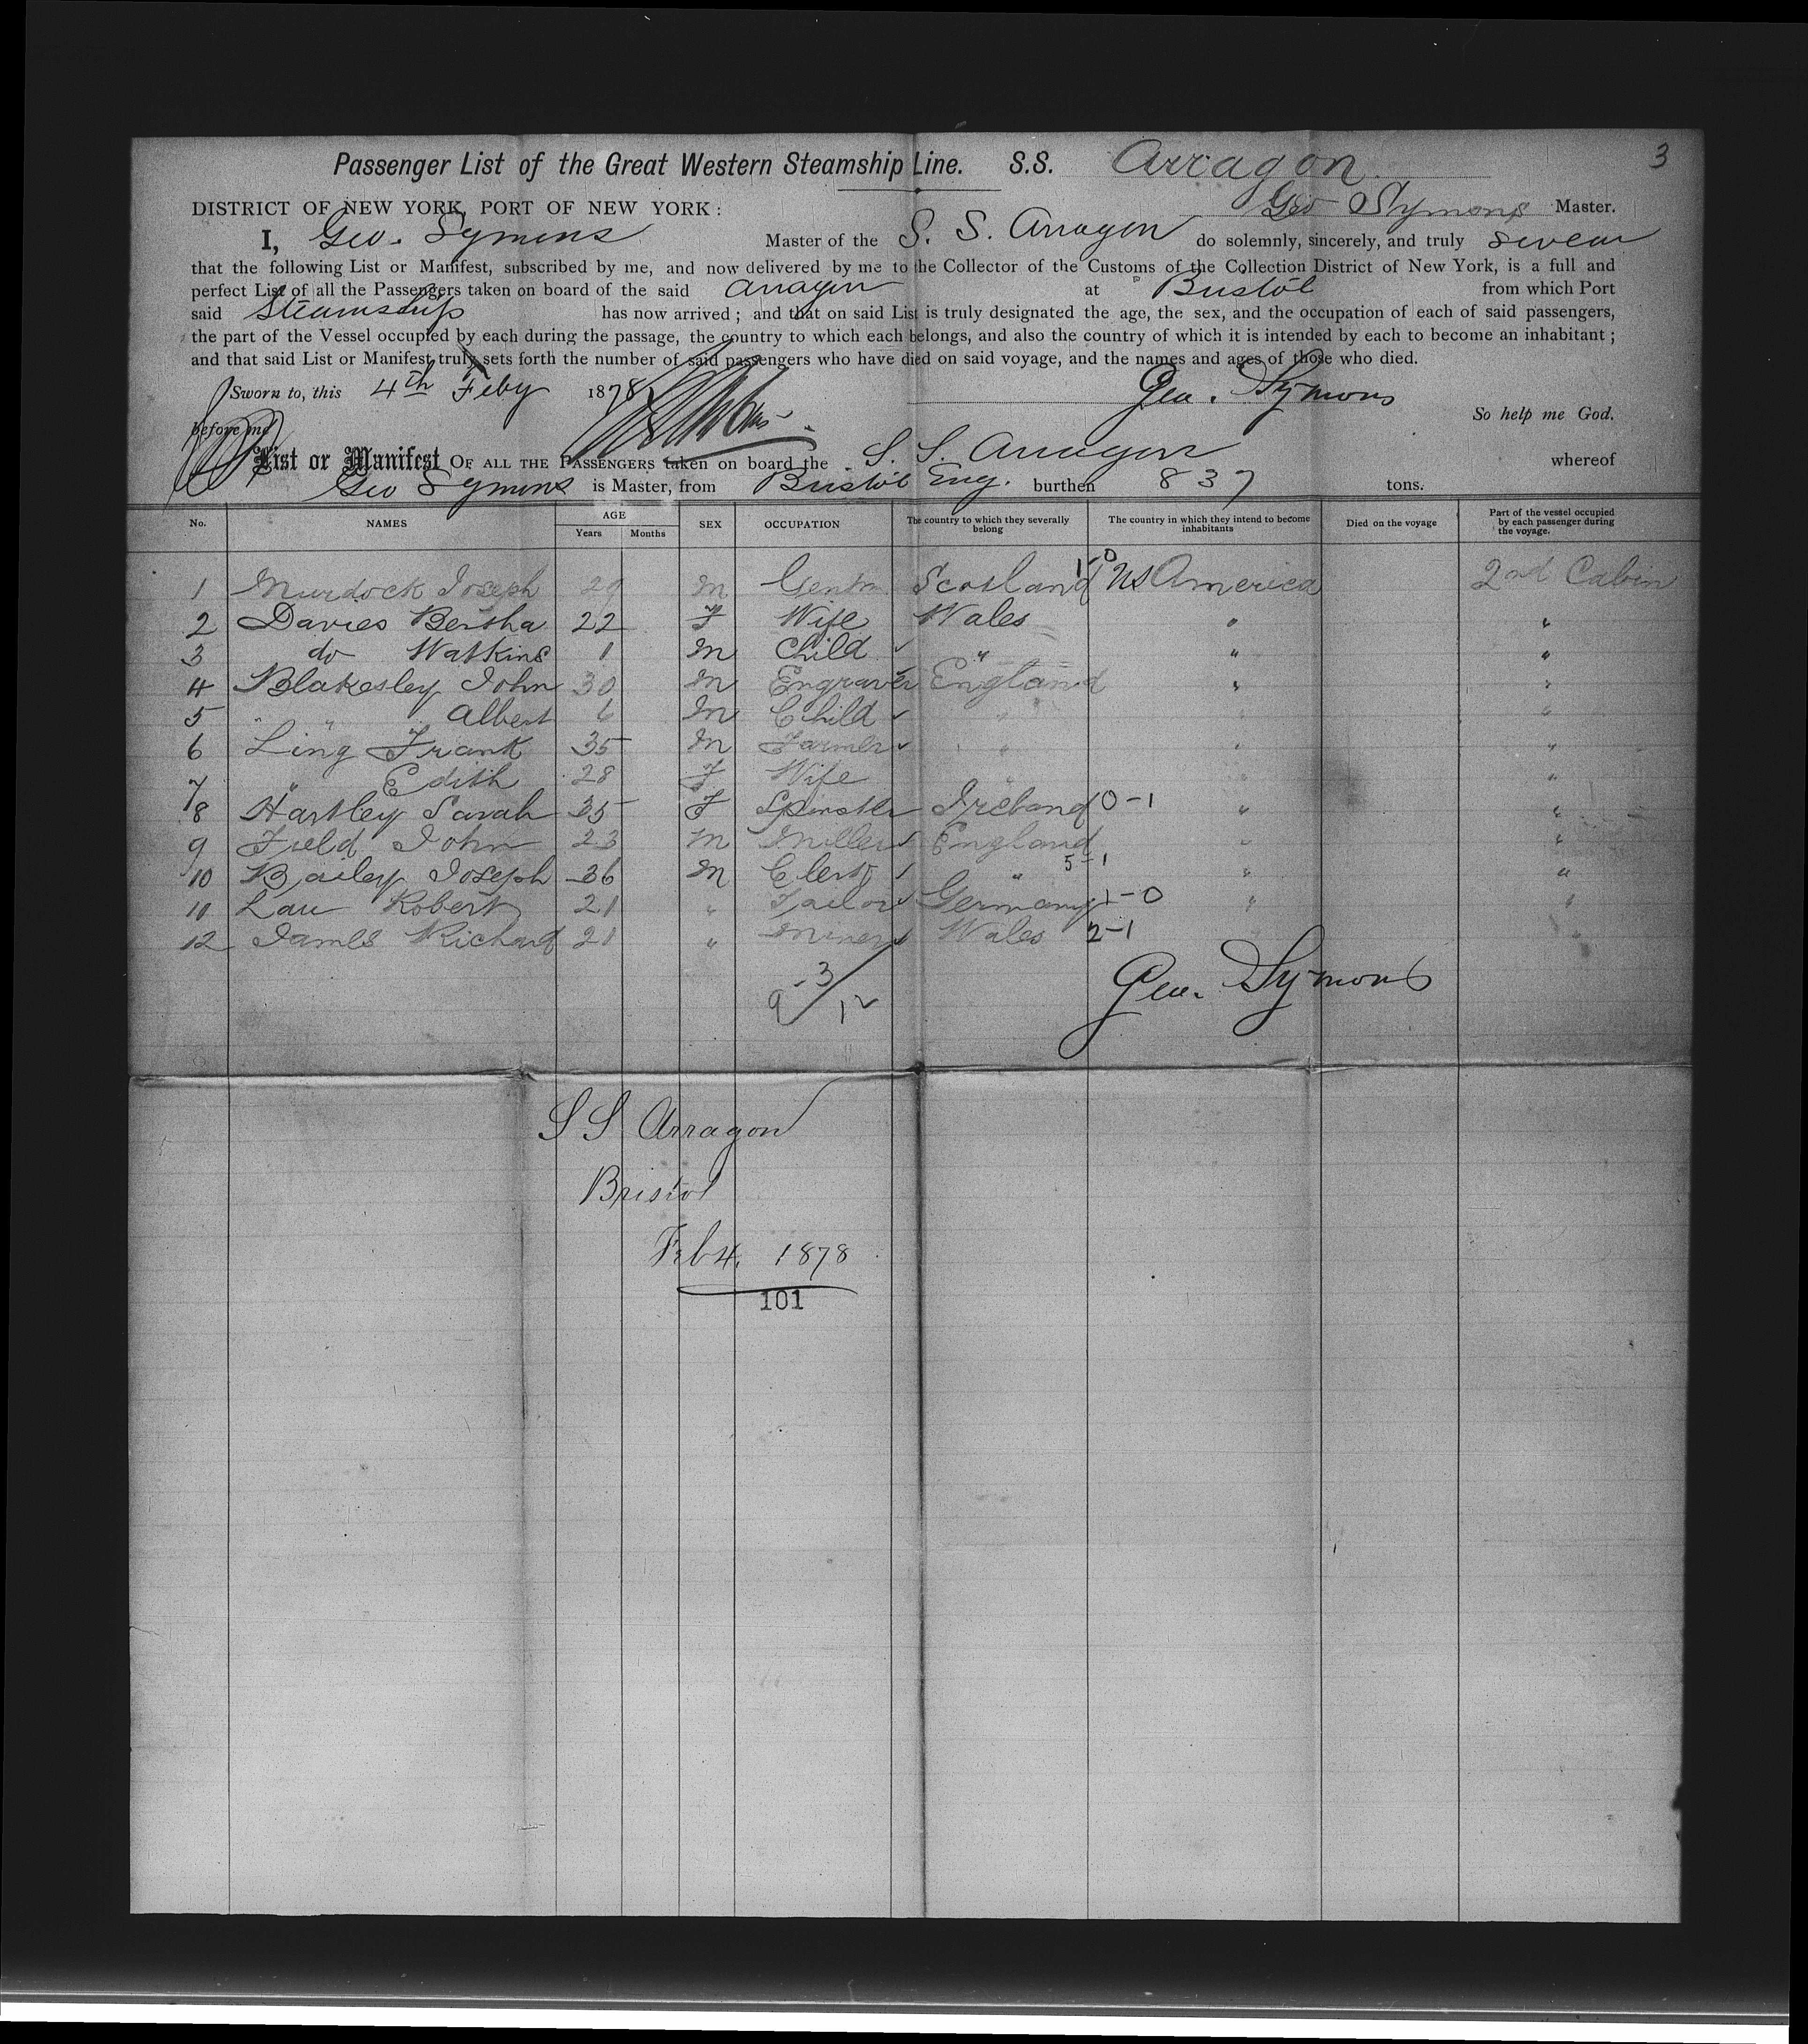 Passenger List of the Great Western Steamship Line. S.S. Arragon 3
DISTRICT OF NEW YORK, PORT OF NEW YORK: Geo Symons Master.
I, Geo. Symons Master of the S. S. Arragon do solemnly, sincerely, and truly swear
that the following List or Manifest, subscribed by me, and now delivered by me to the Collector of the Customs of the Collection District of New York, is a full and
perfect List of all the Passengers taken on board of the said Arragon at Bristol from which Port
said Steamship has now arrived; and that on said List is truly designated the age, the sex, and the occupation of each of said passengers,
the part of the Vessel occupied by each during the passage, the country to which each belongs, and also the country of which it is intended by each to become an inhabitant;
and that said List or Manifest truly sets forth the number of said passengers who have died on said voyage, and the names and ages of those who died.
Sworn to, this 4th Feby 1878 Geo. Symons
So help me God.
before me
List or Manifest OF ALL THE PASSENGERS taken on board the S. S. Arragon whereof
Geo Symons is Master, from Bristol Eng. burthen 837 tons.
No. NAMES AGE Years Months SEX OCCUPATION The country to which they severally belong The country in which they intend to become inhabitants Died on the voyage Part of the vessel occupied by each passenger during the voyage.
1 Murdock Joseph 29 M Gentn Scotland 1-0 US America 2nd Cabin
2 Davies Bertha 22 F Wife Wales " "
3 do Watkins 1 M Child " " "
4 Blakesley John 30 M Engraver England " "
5 " " Albert 6 M Child " " "
6 Ling Frank 35 M Farmer " " "
7 " Edith 28 F Wife " " "
8 Hartley Sarah 35 F Spinster Ireland 0-1 " "
9 Field John 23 M Miller England " "
10 Bailey Joseph 36 M Clerk " 5-1 " "
11 Lau Robert 21 " Tailor Germany 1-0 " "
12 James Richard 21 " Miner Wales 2-1 " "
9-3/12
Geo. Symons
S S Arragon
Bristol
Feb 4. 1878
101